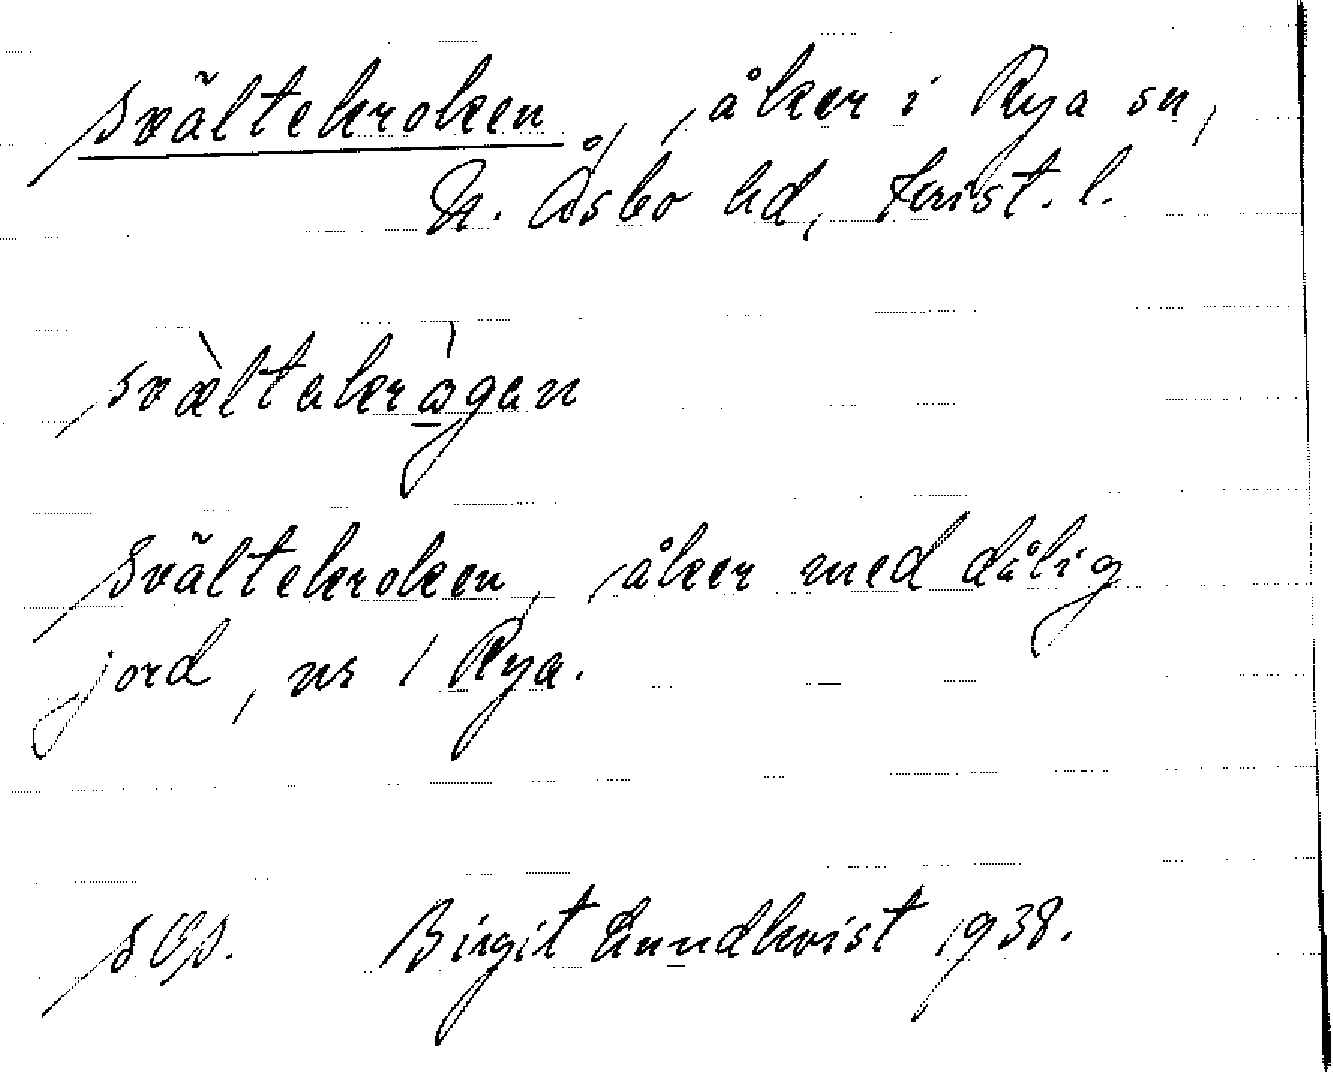 Svältekroken, åker i Rya sn,
N. Åsbo hd, Krist. l.
svæ̀ltakrògan
Svältekroken, åker med dålig
jord, nr 1 Rya.
Birgit Lundkvist 1938.